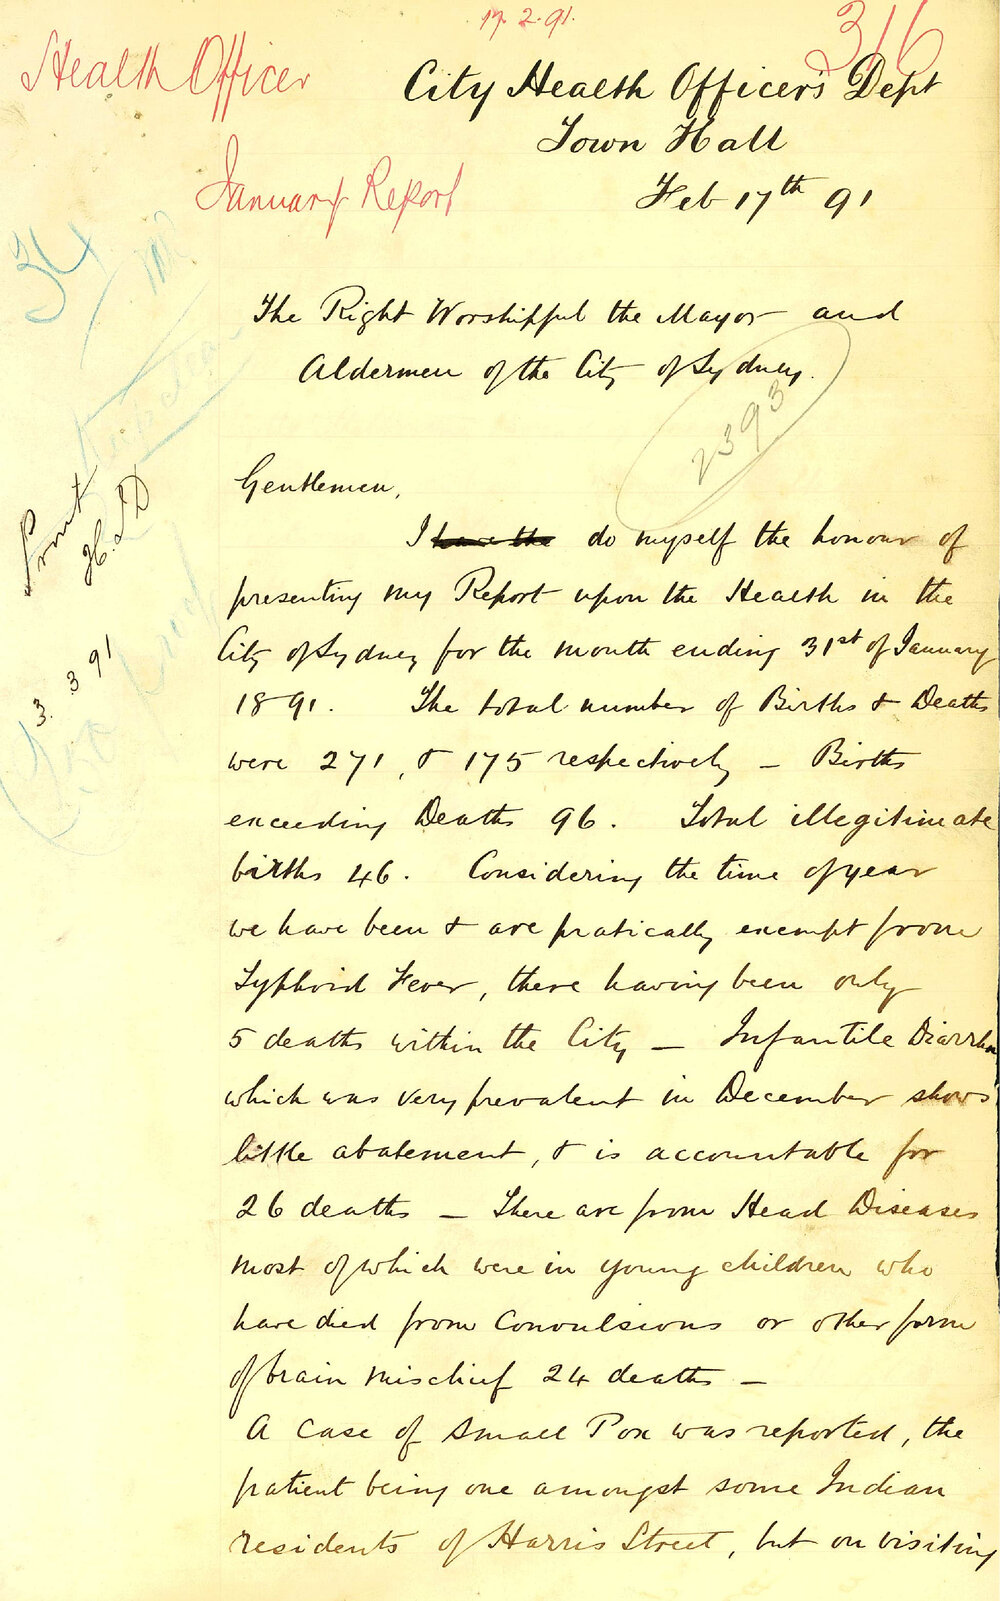 17.2.91.
316
Health Officer
City Health Officer's Dept
Town Hall
January Report
Feb 17th 91
34
The Right Worshipful the Mayor and
Aldermen of the City of Sydney.
2393
Gentlemen,
Print
H.S.D
3. 3 91
I have the do myself the honour of
presenting my Report upon the Health in the
City of Sydney for the month ending 31st of January
1891. The total number of Births & Deaths
were 271, & 175 respectively — Births
exceeding Deaths 96. Total illegitimate
births 46. Considering the time of year
we have been & are pratically exempt from
Typhoid Fever, there having been only
5 deaths within the City — Infantile Diarrhea
which was very prevalent in December shows
little abatement, & is accountable for
26 deaths — There are from Head Diseases
most of which were in young children who
have died from Convulsions or other form
of brain mischief 24 deaths —
A Case of Small Pox was reported, the
patient being one amongst some Indian
residents of Harris Street, but on visiting